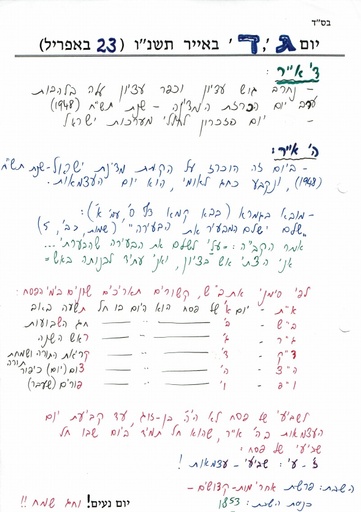 בס"ד
יום ג', ד' באייר תשנ"ו (23 באפריל)
ד' אייר:
- נחרב גוש עציון וכפר עציון עלה בלהבות
ערב יום הכרזת המדינה - שנת תש"ח (1948)
- יום הזכרון לחללי מערכות ישראל
ה' אייר:
- ביום זה הוכרז על הקמת מדינת ישראל - שנת תש"ח
(1948), ונקבע כחג לאומי, הוא יום העצמאות.
- מובא בגמרא (בבא קמא דף ס', עמ' א'):
"שלם ישלם המבעיר את הבערה" (שמות, כב', 5)
אמר הקב"ה: עלי לשלם את הבערה שהבערתי...
אני הצתי אש בציון, ואני עתיד לבנותה באש.
לפי סימני את ב"ש, קשורים תאריכים שונים בימי הפסח:
א"ת - יום א' של פסח הוא היום בו חל תשעה באב
ב"ש - ב' חג השבועות
ג"ר - ג' ראש השנה
ד"ק - ד' קריאת התורה ושמחת תורה
ה"צ - ה' צום (יום) כיפור
ו"פ - ו' פורים (שעבר)
לשביעי של פסח לא היה בן-זוג, עד קביעת יום
העצמאות בה' אייר, שהוא חל תמיד ביום שבו חל
שביעי של פסח.
ז' - ע': שביעי - עצמאות!
השבת: פרשת אחרי מות-קדושים -
כניסת השבת: 18:53
יום נעים! וחג שמח!!